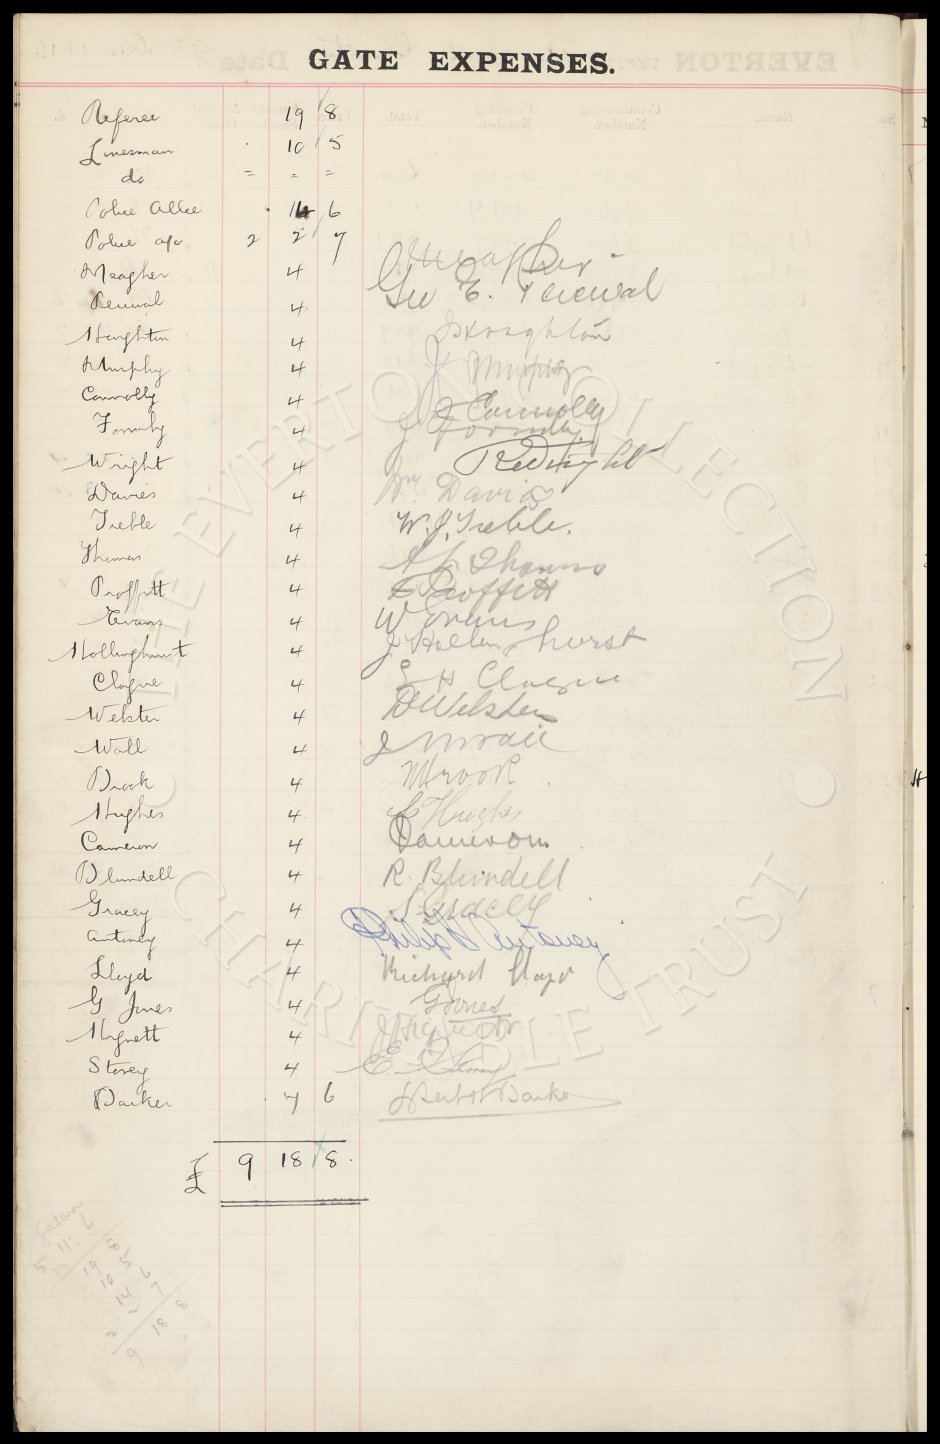 GATE EXPENSES.
Referee 19 8
Linesman 10 5
do = = =
Police Allce 14 6
Police a/c 2 2 7
Meagher 4
Percival 4 Geo E. Percival
Houghton 4 Houghton
Murphy 4 J Murphy
Connolly 4 J Connolly
Formby 4 J Formby
Wright 4
Davies 4 Wm Davies
Treble 4 W. J. Treble.
Thomas 4 Thomas
Proffitt 4 Proffitt
Evans 4 W Evans
Hollinghurst 4 J Hollinghurst
Clague 4 H Clague
Webster 4 Webster
Wall 4
Brook 4 Brook
Hughes 4 Hughes
Cameron 4 Cameron
Blundell 4 R. Blundell
Gracey 4 Gracey
Antoney 4 Philip Antoney
Lloyd 4 Richard Lloyd
G Jones 4 G Jones
Hignett 4
Storey 4 E. Storey
Barker 7 6 Barker
£ 9 18 8.
THE EVERTON COLLECTION
CHARITABLE TRUST